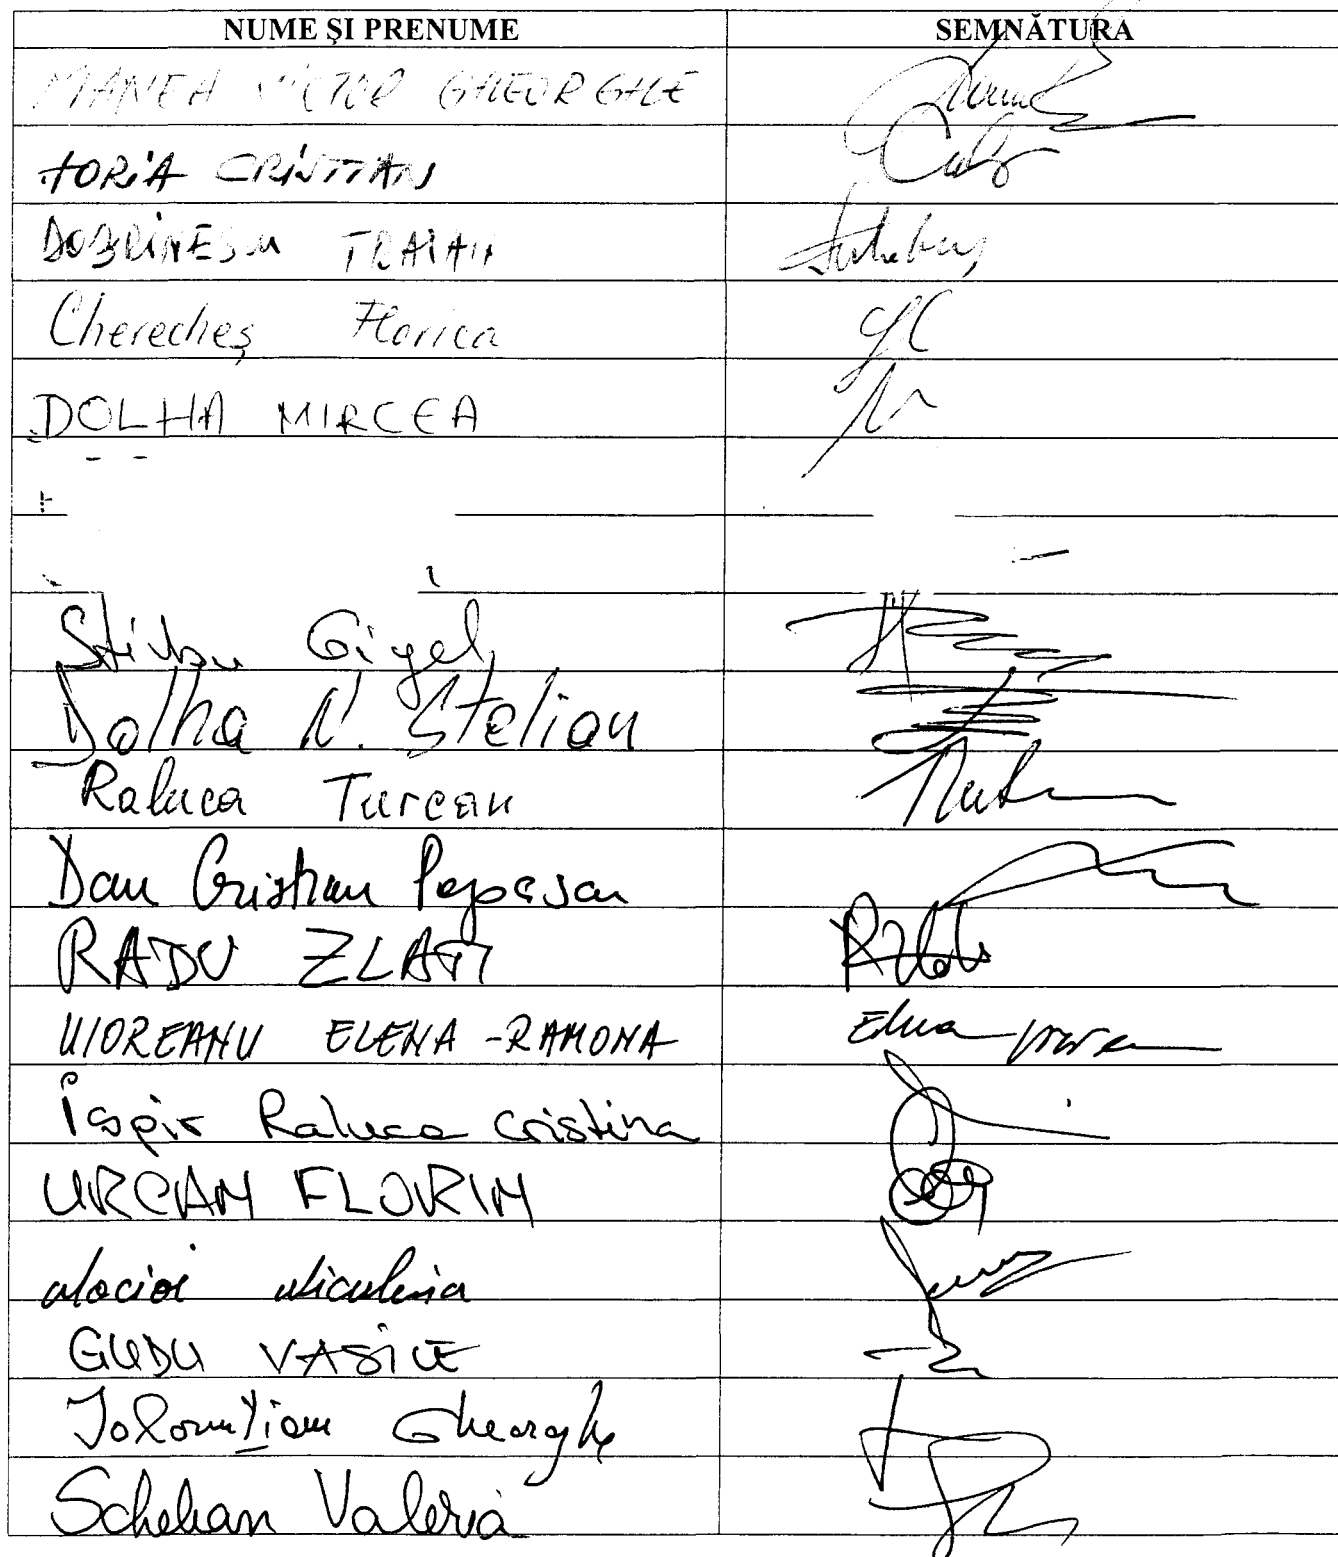 NUME ŞI PRENUME SEMNĂTURA
MANEA VICTOR GHEORGHE
HORIA CRISTIAN
DOBRINESCU TRAIAN
Cherecheş Florica
DOLHA MIRCEA
Ştirbu Gigel
Dolha N. Stelian
Raluca Turcan
Dan Cristian Popescu
RADU ZLATI
UIOREANU ELENA-RAMONA
Ispir Raluca Cristina
URCAN FLORIN
Mocioi Niculina
GUDU VASILE
Ialomiţianu Gheorghe
Schelean Valeria